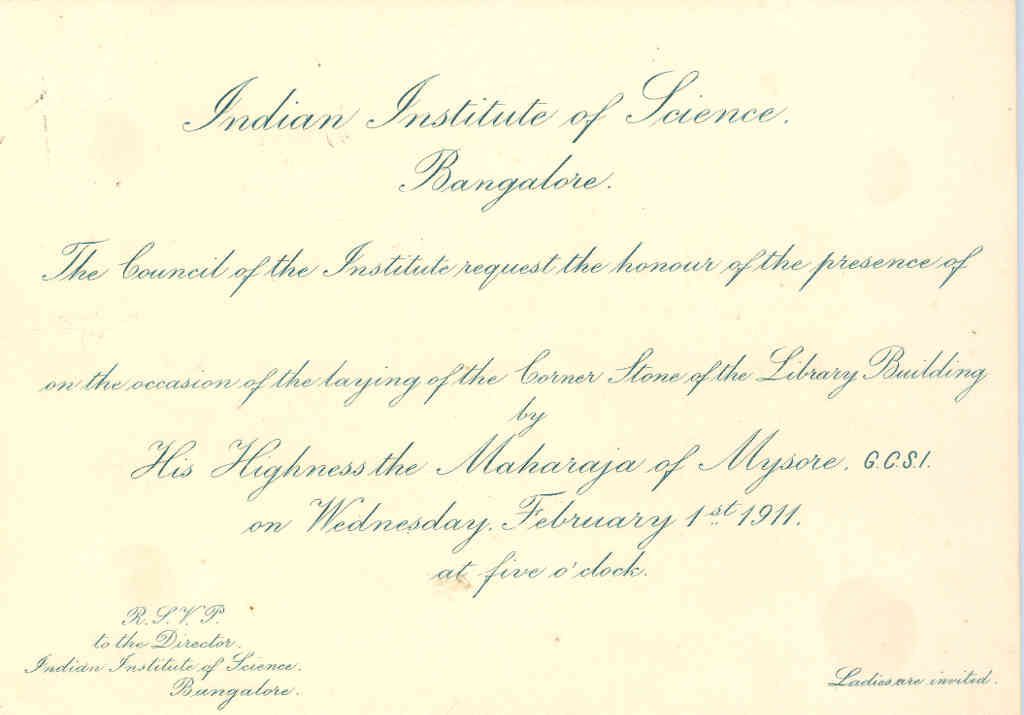 Indian Institute of Science.
Bangalore.
The Council of the Institute request the honour of the presence of
on the occasion of the laying of the Corner Stone of the Library Building
by
His Highness the Maharaja of Mysore. G.C.S.I.
on Wednesday. February 1st 1911.
at five o'clock.
R.S.V.P.
to the Director.
Indian Institute of Science.
Bangalore.
Ladies are invited.